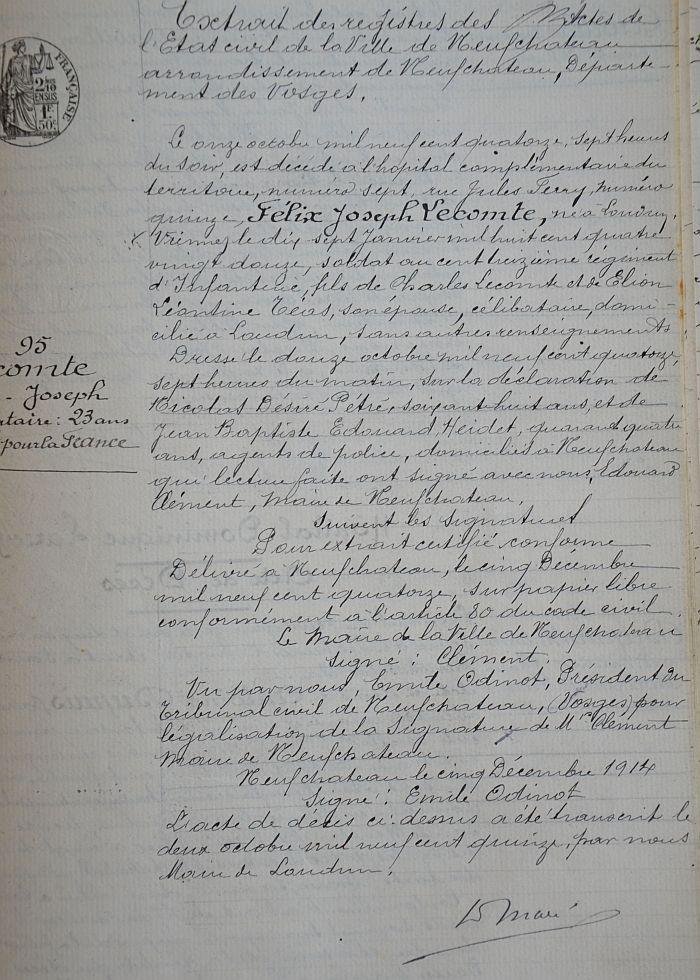 Extrait des registres des Actes de
l'Etat civil de la Ville de Neufchateau
arrondissement de Neufchateau, Départe-
ment des Vosges.
FRANÇAISE
2/10 EN SUS
1F 50c
Le onze octobre mil neuf cent quatorze, sept heures
du soir, est décédé à l'hopital complémentaire du
territoire, numéro sept, rue Jules Ferry, numéro
quinze, Félix Joseph Lecomte, né à Loudun,
Vienne, le dix sept Janvier mil huit cent quatre
vingt douze, soldat au cent treizième régiment
d'Infanterie, fils de Charles Lecomte et de
Léontine son épouse, célibataire, domi-
cilié à Loudun, sans autres renseignements
95
comte
- Joseph
taire: 23 ans
pour la France
Dressé le douze octobre mil neuf cent quatorze,
sept heures du matin, sur la déclaration de
Nicolas Désiré Pétré, soixant huit ans, et de
Jean Baptiste Edouard Heidet, quarant quatre
ans, agents de police, domiciliés à Neufchateau
qui lecture faite ont signé avec nous, Edouard
Clément, Maire de Neufchateau.
Suivent les signatures
Pour extrait certifié conforme
Délivré à Neufchateau, le cinq Décembre
mil neuf cent quatorze, sur papier libre
conformément à l'article 80 du code civil.
Le Maire de la Ville de Neufchateau
signé: Clément.
Vu par nous, Emile Odinot, Président du
Tribunal civil de Neufchateau, (Vosges) pour
légalisation de la Signature de Mr Clément
Maire de Neufchateau.
Neufchateau le cinq Décembre 1914
Signé: Emile Odinot
L'acte de décès ci-dessus a été transcrit le
deux octobre mil neuf cent quinze, par nous
Maire de Loudun.